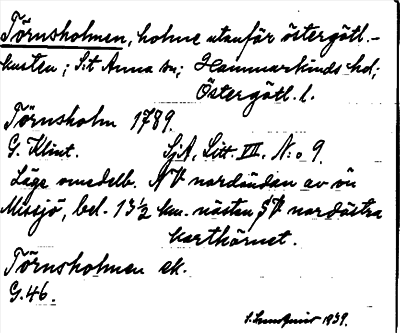 Törnsholmen, holme utanför östergötl.-
kusten; S:t Anna sn; Hammarkinds hd;
Östergötl. l.
Törnsholm 1789.
G. Klint. SjA. Litt. VII. N:o 9.
Läge omedelb. NV nordändan av ön
Missjö, bel. 13½ km. nästan SV nordöstra
karthörnet.
Törnsholmen ek.
G.46.
1939.